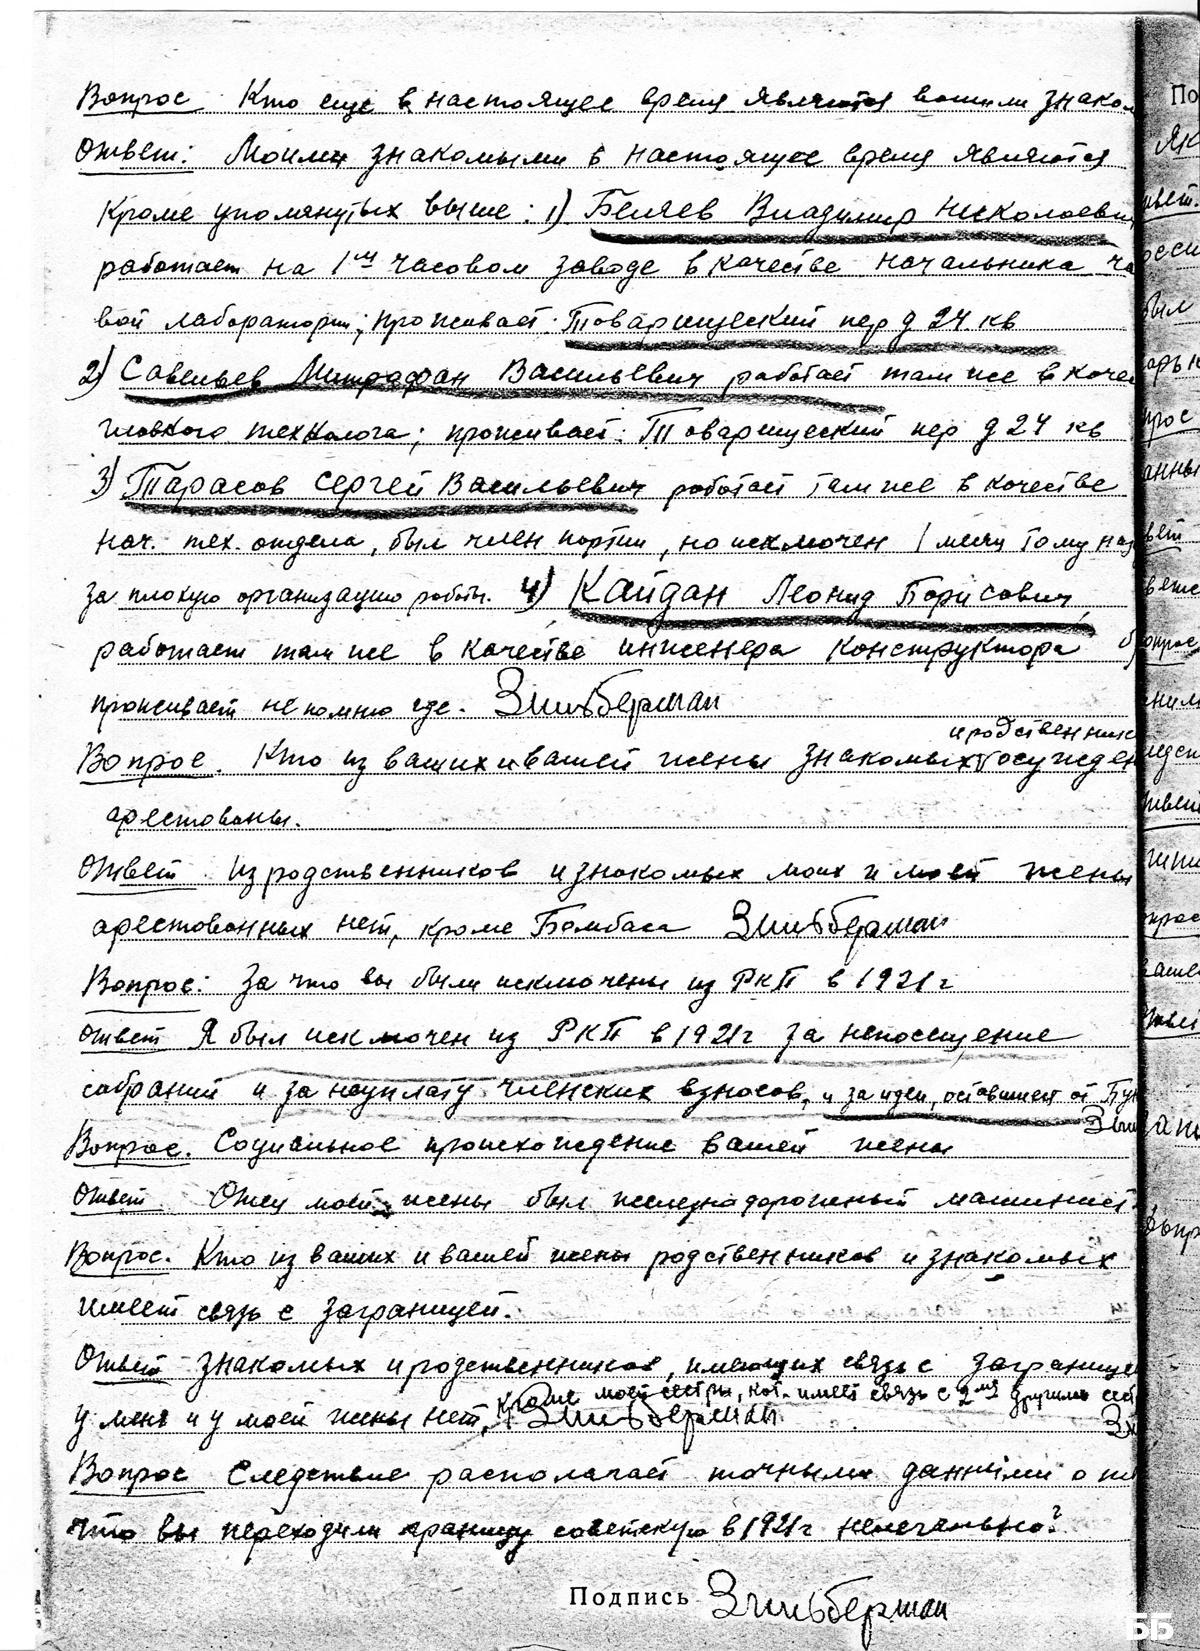 Вопрос Кто еще в настоящее время являются вашими знаком
Ответ: Моими знакомыми в настоящее время являются
кроме упомянутых выше: 1) Беляев Владимир Николаеви
работает на 1м часовом заводе в качестве начальника ча
вой лаборатории; проживает: Товарищеский пер д 24 кв
2) Савельев Митрофан Васильевич работает там же в каче
главного технолога; проживает: Товарищеский пер д 24 кв
3) Тарасов Сергей Васильевич работает там же в качестве
нач. тех. отдела, был член партии, но исключен 1 месяц тому наз
за плохую организацию работы. 4) Кайдан Леонид Борисович,
работает там же в качестве инженера конструктора
проживает не помню где. Зильберман
и родственник
Вопрос. Кто из ваших и вашей жены знакомых осужден
арестованы.
Ответ Из родственников и знакомых моих и моей жены
арестованных нет, кроме Бомбаса Зильберман
Вопрос: За что вы были исключены из РКП в 1921 г
Ответ Я был исключен из РКП в 1921 г за непосещение
собраний и за неуплату членских взносов, и за идеи, оставшиеся от Бун
Зиль
Вопрос. Социальное происхождение вашей жены
Ответ Отец моей жены был железнодорожный машинист
Вопрос. Кто из ваших и вашей жены родственников и знакомых
имеет связь с заграницей.
Ответ знакомых и родственников, имеющих связь с заграницей
кроме моей сестры, кот. имеет связь с 2мя другими сес
у меня и у моей жены нет, Зильберман
Зи
Вопрос Следствие располагает точными данными о
что вы переходили границу советскую в 1921 г нелегально?
Подпись Зильберман
ББ
По
Як